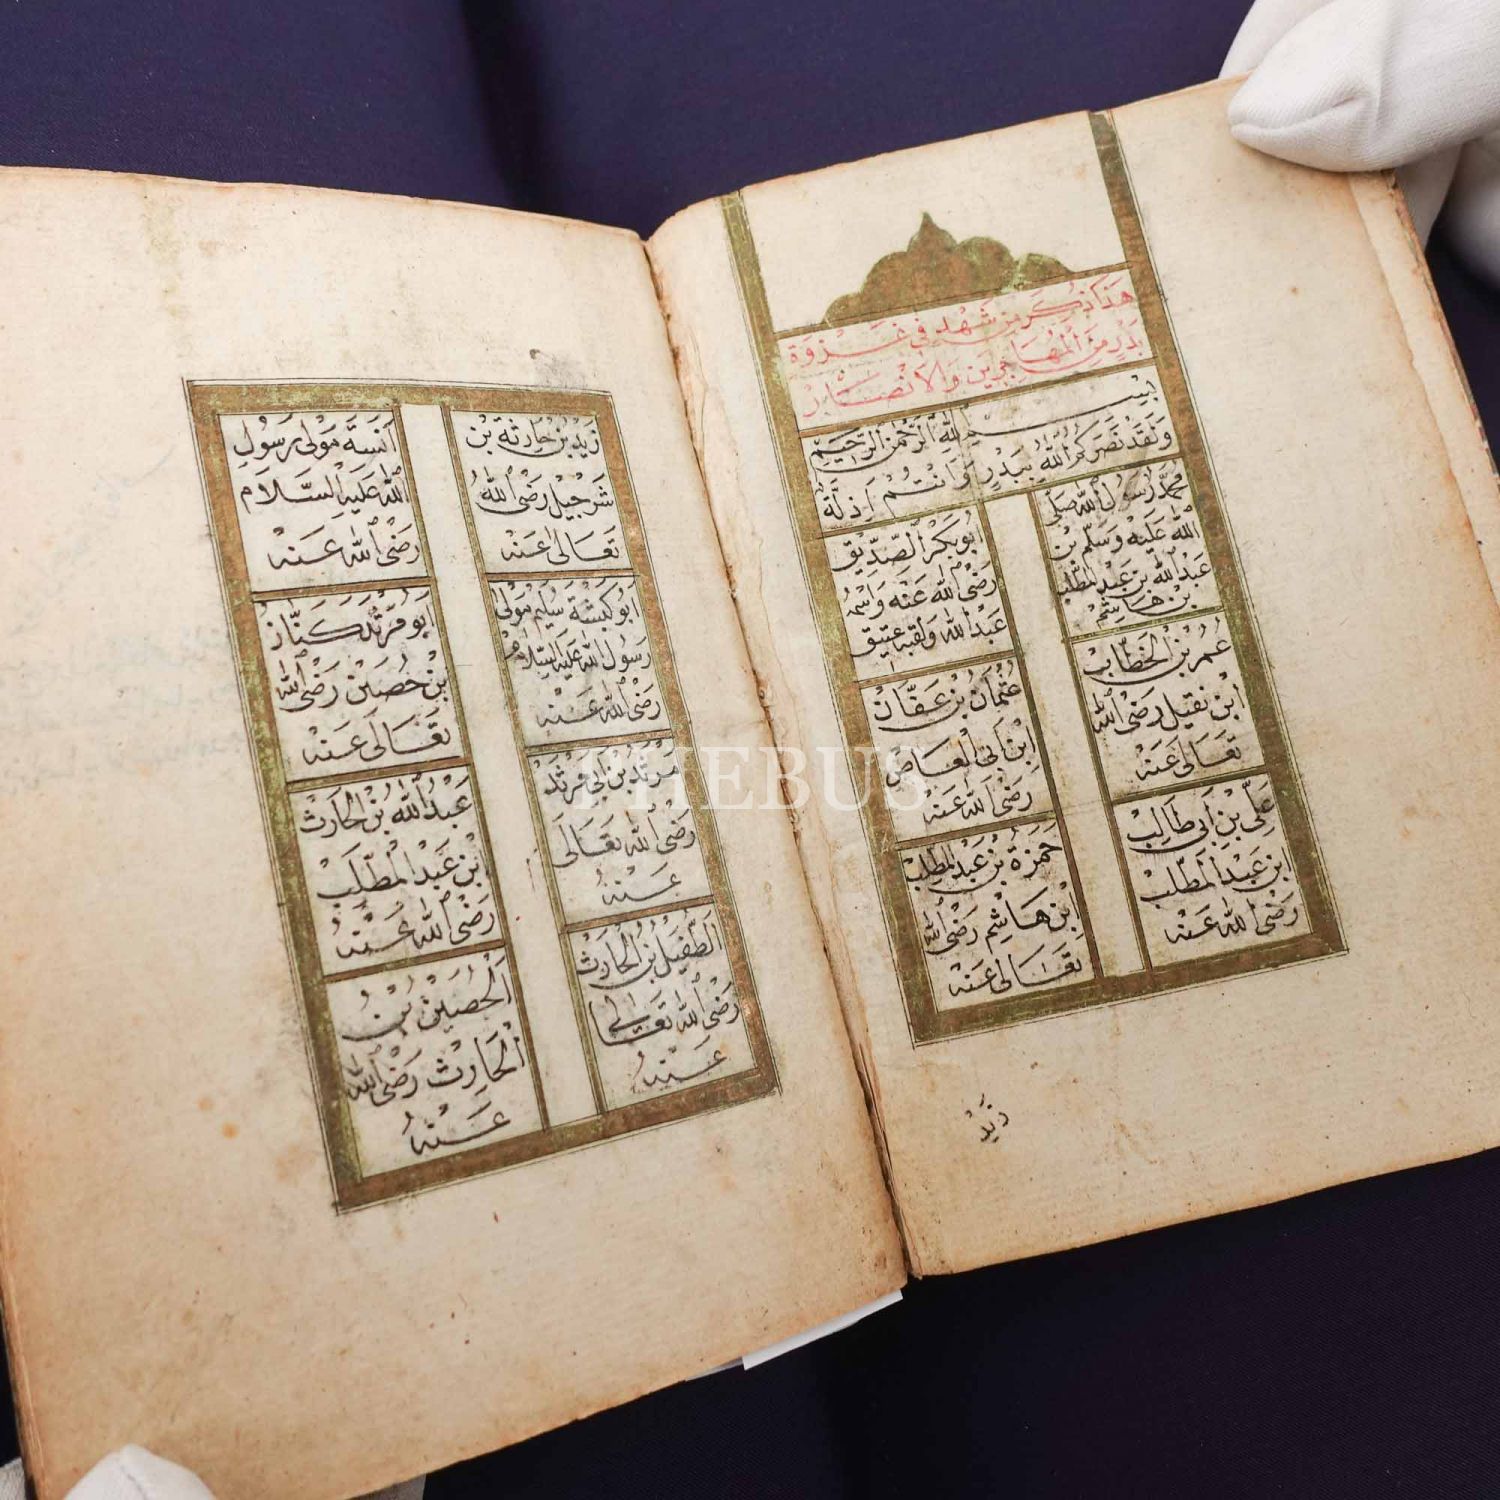 هذا ذكر من شهد في غزوة
بدر من المهاجرين والأنصار
بسم الله الرحمن الرحيم
ولقد نصركم الله ببدر وانتم اذلة
محمد رسول الله صلى
الله عليه وسلم بن
عبد الله بن عبد المطلب
بن هاشم
ابو بكر الصديق
رضى الله عنه واسمه
عبد الله ولقبه عتيق
عمر بن الخطاب
ابن نفيل رضى الله
تعالى عنه
عثمان بن عفان
ابن ابى العاص
رضى الله عنه
على بن ابى طالب
ابن عبد المطلب
رضى الله عنه
حمزة بن عبد المطلب
ابن هاشم رضى الله
تعالى عنه
زيد
زيد بن حارثة بن
شرحبيل رضى الله
تعالى عنه
آنسة مولى رسول
الله عليه السلام
رضى الله عنه
ابو كبشة سليم مولى
رسول الله عليه السلام
رضى الله عنه
ابو مرثد كناز
بن حصين رضى الله
تعالى عنه
مرثد بن ابى مرثد
رضى الله تعالى
عنه
عبد الله بن الحارث
ابن عبد المطلب
رضى الله عنه
الطفيل بن الحارث
رضى الله تعالى
عنه
الحصين بن
الحارث رضى الله
عنه
PHEBUS